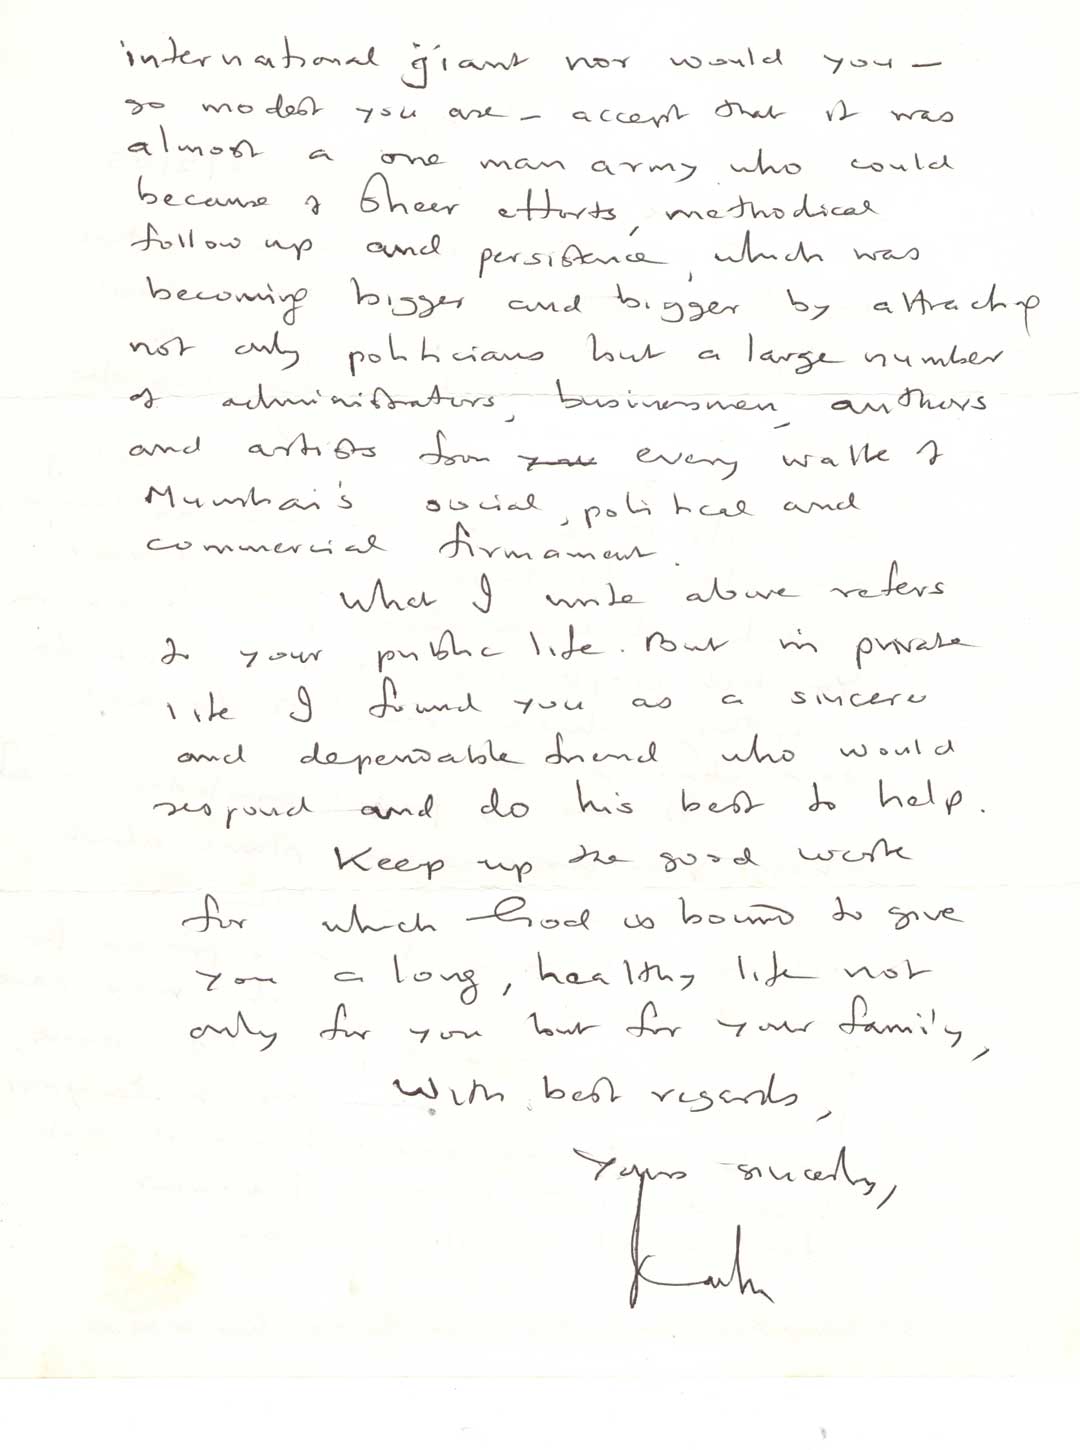 international giant nor would you –
so modest you are – accept that it was
almost a one man army who could
because of sheer efforts, methodical
follow up and persistance, which was
becoming bigger and bigger by attracting
not only politicians but a large number
of administrators, businessmen, authors
and artists from every walk of
Mumbai's social, political and
commercial firmament.
What I write above refers
to your public life. But in private
life I found you as a sincere
and dependable friend who would
respond and do his best to help.
Keep up the good work
for which God is bound to give
you a long, healthy life not
only for you but for your family,
With best regards,
Yours sincerely,